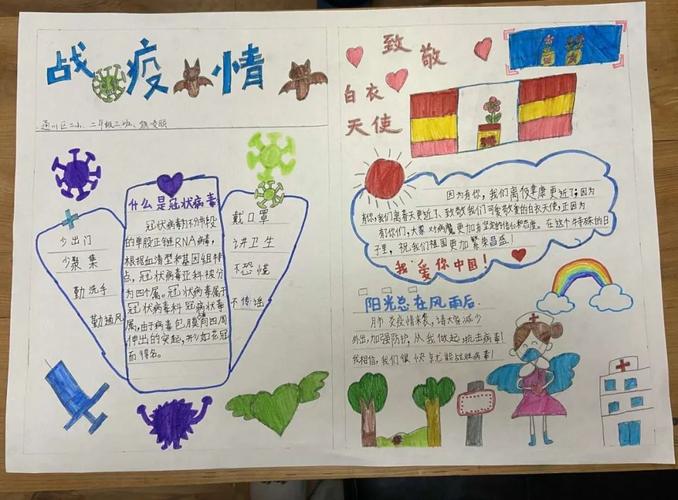 战疫情
通川区二小、二年级二班、
什么是冠状病毒
冠状病毒为不分节段
的单股正链RNA病毒,
根据血清型和基因组特
点,冠状病毒亚科被分
为四个属。冠状病毒属于
冠状病毒科冠状病毒
属,由于病毒包膜有向四周
伸出的突起,形如花冠
而得名。
少出门
少聚集
勤洗手
勤通风
戴口罩
讲卫生
不恐慌
不传谣
致敬
白衣
天使
因为有你,我们离夜更近了,因为
有你,我们离春天更近了、致敬我们可爱敬爱的白衣天使,正因为
有你们,大家对病魔更加有坚定的信心和态度。在这个特殊的日
子里,祝我们祖国更加繁荣昌盛!
我爱你中国!
阳光总在风雨后
炎疫情来袭,请大家减少
外出,加强防护,从我做起,抗击病毒!
我相信,我们很快就能战胜病毒!